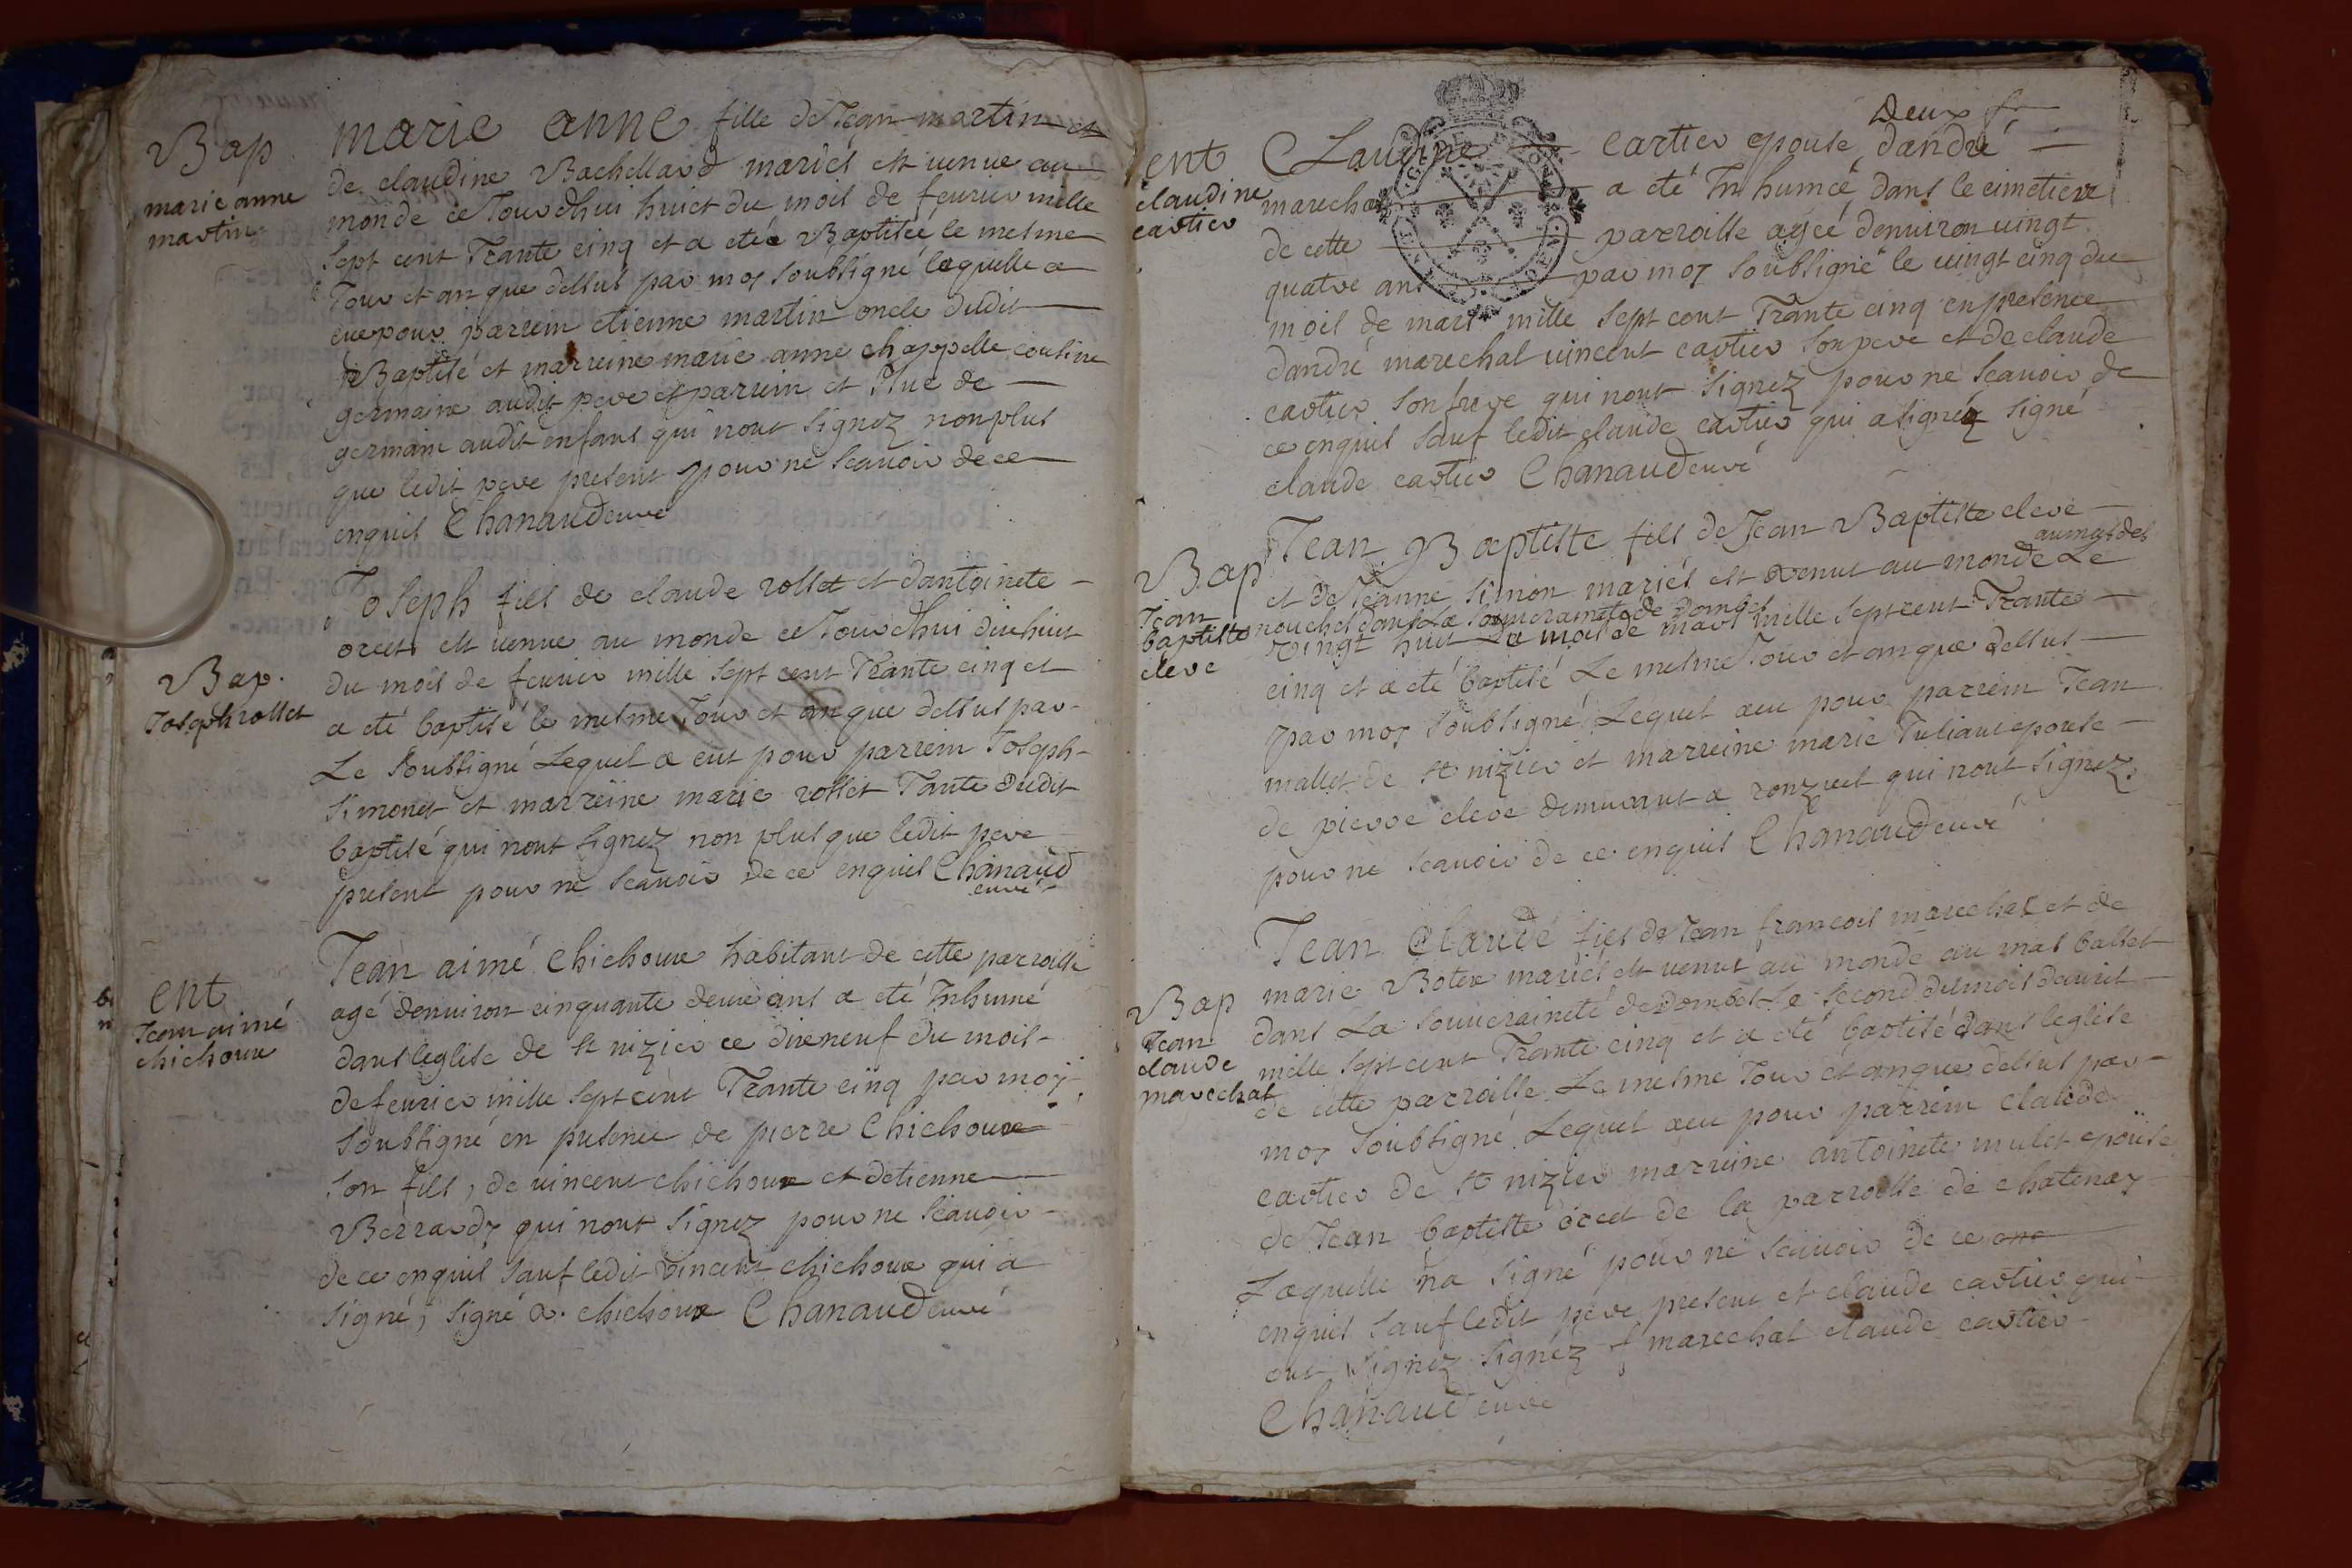 Bap
marie anne
martin
marie anne fille de Jean martin et
de claudine Bachellard mariés est venue au
monde ce Jourdhui huict du mois de feurier mille
sept cent Trante cinq et a etéé Baptiséé le mesme
Jour et an que dessus par moy soubsigné laquelle a
eue pour parrein etienne martin oncle dudit
Baptisé et marreine marie anne chappelle cousine
germaine audit pere et parrein et
germain audit enfans qui nont signez nonplus
que ledit pere present pour ne scauoir de ce
enquis Chanaud curé
Bap.
Joseph rollet
Joseph fils de claude rollet et dantoinete
orcet est venue au monde ce Jourdhui dixhuict
du mois de feurier mille sept cent Trante cinq et
a eté baptisé le mesme Jour et an que dessus par
Le soubsigné Lequel a eut pour parrein Joseph
simonet et marreine marie rollet Tante dudit
baptisé qui nont signez non plus que ledit pere
present pour ne scauoir de ce enquis Chanaud
curé
ent
Jean aimé
chichoux
Jean aimé Chichoux habitant de cette parroisse
agé denuiron cinquante deux ans a eté Inhumé
dans leglise de st nizier ce dixneuf du mois
de feurier mille sept cent Trante cinq par moy
soubsigné en presence de pierre Chichoux
son fils, de vincent chichoux et detienne
Berrardy qui nont signez pour ne scauoir
de ce enquis sauf ledit vincent chichoux qui a
signé, signé v. chichoux Chanaud curé
Deux f
ent
claudine
cartier
Claudine cartier epouse dandré
marechal a eté Inhumée dans le cimetiere
de cette parroisse agéé denuiron uingt
quatre ans par moy soubsigné le uingt cinq du
mois de mars mille sept cent Trante cinq en presence
dandré marechal vincent cartier son pere et de claude
cartier son frere qui nont signez pour ne scauoir de
ce enquis sauf ledit claude cartier qui a signéz signé
claude cartier Chanaud curé
Bap
Jean
baptiste
cleve
Jean Baptiste fils de Jean Baptiste cleve
au mas des
et de Jeanne simon mariés est venut au monde Le
nouches dans La souueraineté de Dombes
vingt huit du mois de mars mille sept cent Trante
cinq et a eté baptisé Le mesme Jour et an que dessus
par moy soubsigné Lequel a eu pour parrein Jean
mallet de st nizier et marreine marie Juliant epouse
de pierre cleve demurant a ronzuel qui nont signez
pour ne scauoir de ce enquis Chanaud curé
Bap
Jean
claude
marechal
Jean Claude fils de Jean francois marechal et de
marie Botex mariés est venut au monde au mas ballet
dans La souueraineté de Dombes Le second du mois dauril
mille sept cent Trante cinq et a eté baptisé dans leglise
de cette parroisse Le mesme Jour et an que dessus par
moy soubsigné Lequel a eu pour parrein claude
cartier de st nizier marreine antoinete mulet epouse
de Jean baptiste orcet de la parroisse de chatenay
Laquelle na signé pour ne scauoir de ce
enquis sauf ledit pere present et claude cartier qui
ont signez signéz f marechal claude cartier
Chanaud curé